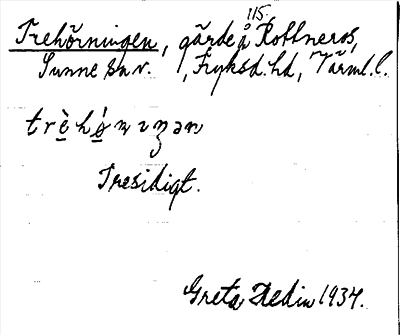 115
Trehörningen, gärde å Rottneros,
Sunne sn v. 1, Fryksd. hd, Värml. l.
Tresidigt.
Greta Hedin 1934.